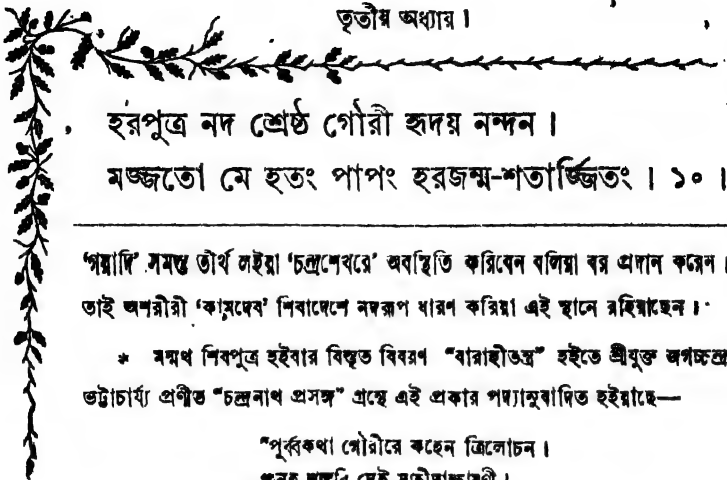 তৃতীয় অধ্যায়।
হরপুত্র নদ শ্রেষ্ঠ গৌরী হৃদয় নন্দন।
মজ্জতো মে হতং পাপং হরজন্ম-শতার্জ্জিতং। ১০।
'গয়াদি' সমস্ত তীর্থ লইয়া 'চন্দ্রশেখরে' অবস্থিতি করিবেন বলিয়া বর প্রদান করেন।
তাই অশরীরী 'কামদেব' শিবাদেশে নদরূপ ধারণ করিয়া এই স্থানে রহিয়াছেন।
* মন্মথ শিবপুত্র হইবার বিস্তৃত বিবরণ "বারাহীতন্ত্র" হইতে শ্রীযুক্ত জগচ্চন্দ্র
ভট্টাচার্য্য প্রণীত "চন্দ্রনাথ প্রসঙ্গ" গ্রন্থে এই প্রকার পদ্যানুবাদিত হইয়াছে—
"পূর্ব্বকথা গৌরীরে কহেন ত্রিলোচন।